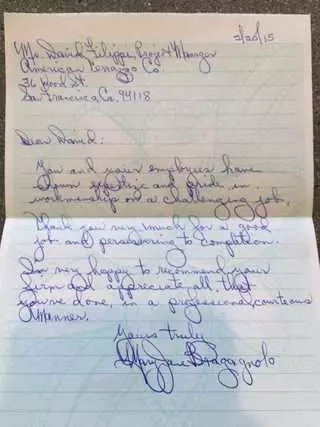 2/20/15
Mr. David Filippi, Project Manager
American Terrazzo Co
36 Wood St.
San Francisco, Ca. 94118
Dear David:
You and your employees have
shown expertize and pride in
workmanship on a challenging job,
Thank you very much for a good
job and persevering to completion.
I'm very happy to recommend your
firm and appreciate all that
you've done, in a professional, courteous
Manner.
Yours truly
Mary Jane Bragagnolo